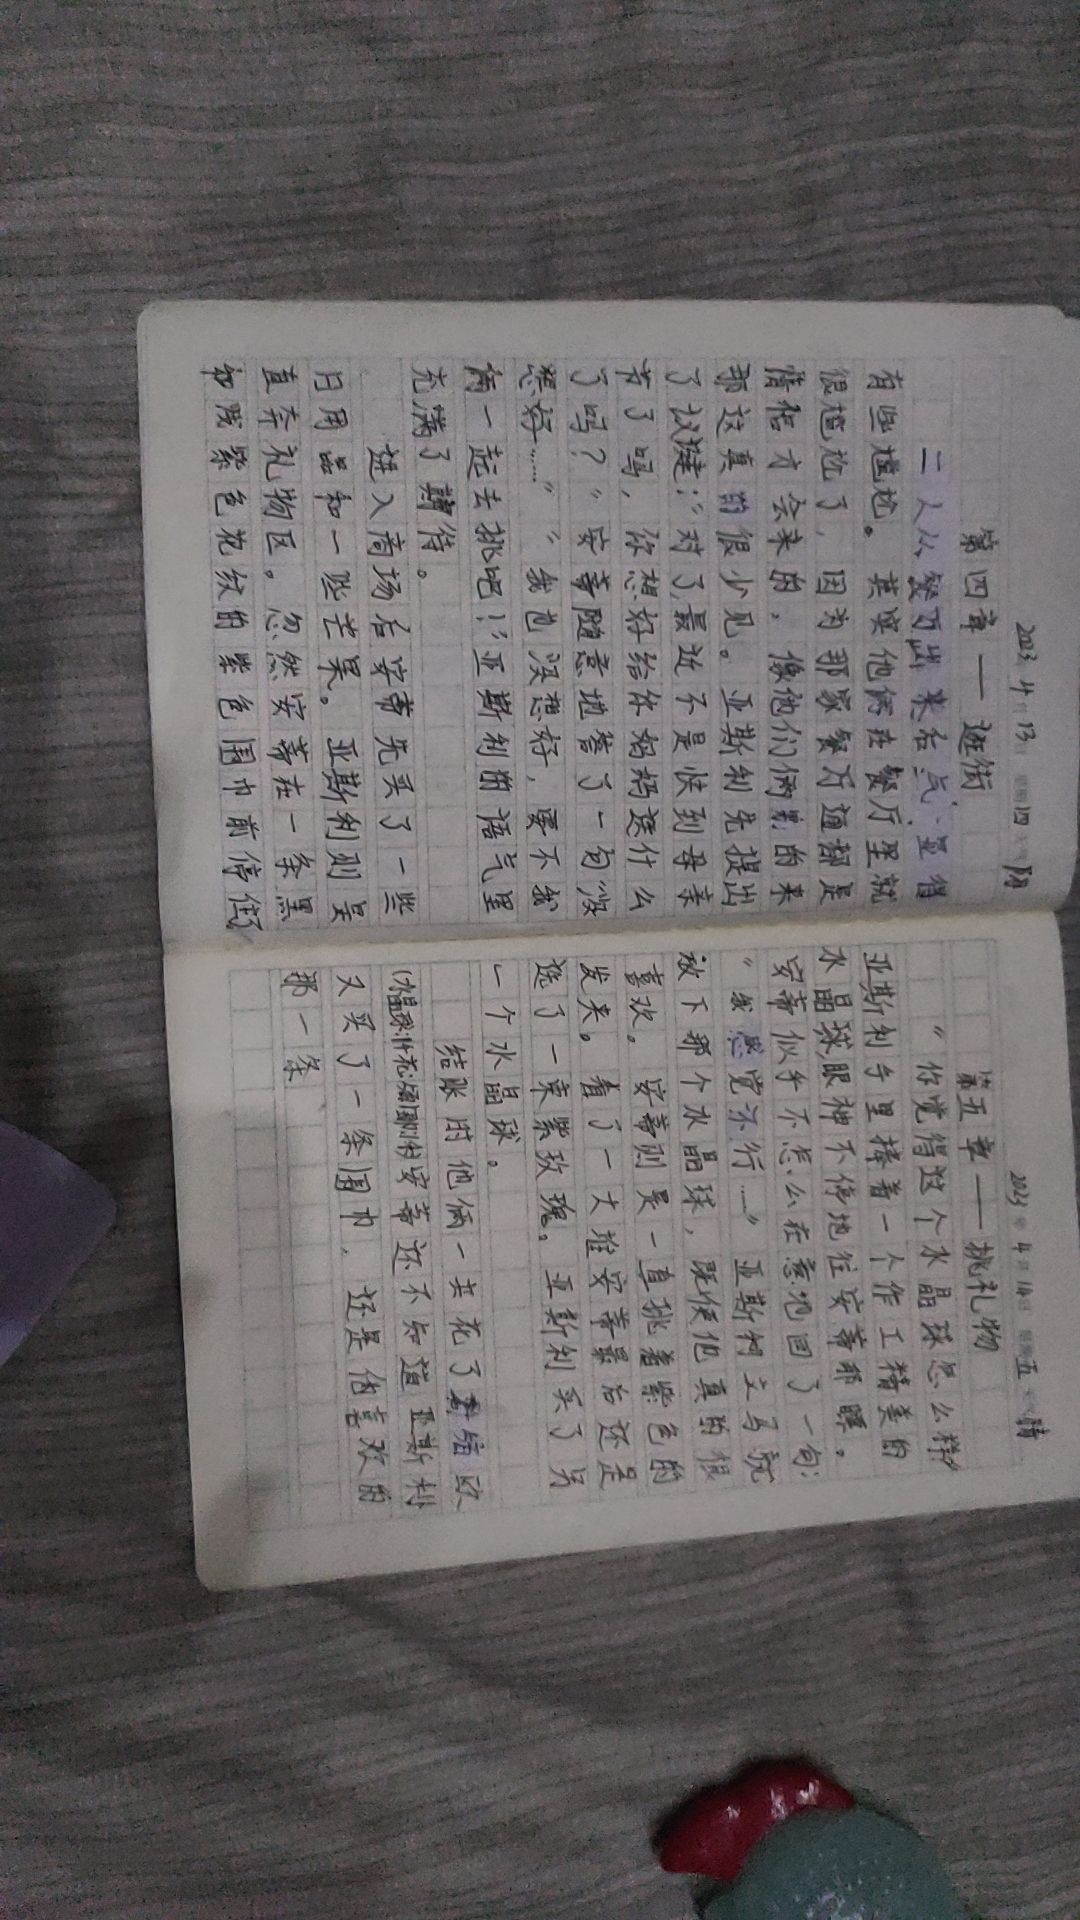 2023年4月13日 星期四 天气 阴
第四章——逛街
二人从餐厅出来后气显得
有些尴尬。其实他俩在餐厅里就
很尴尬了，因为那家餐厅通都是
情侣才会来的，像他们们俩的来
那这真的很少见。亚斯利先提出
了以键：“对了最近不是快到母亲
节了吗，你想好给你妈妈送什么
了吗？”安蒂随意地答了一句“没
想好……”“我也没想好，要不我
俩一起去挑吧！”亚斯利的语气里
充满了期待。
进入商场后安蒂先买了一些
日用品和一些芒果。亚斯利则是
直奔礼物区。忽然安蒂在一条黑
和浅紫色花纹的紫色围巾前停住了
2023年4月14日 星期五 天气 晴
第五章——挑礼物
“你觉得这个水晶球怎么样”
亚斯利手里捧着一人作工精美的
水晶球，眼神不停地往安蒂那瞟。
安蒂似乎不怎么在意地回了一句：
“我感觉不行……”亚斯利立马就
放下那个水晶球，既使他真的很
喜欢。安蒂则是一直挑着紫色的
发来。看了一大堆安蒂最后还是
选了一束紫玫瑰。亚斯利买了另
一个水晶球。
结账时他俩一共花了 欧
(水晶球:件花: 围巾:件)安蒂还不知道亚斯利
又买了一条围巾，还是他喜欢的
那一条